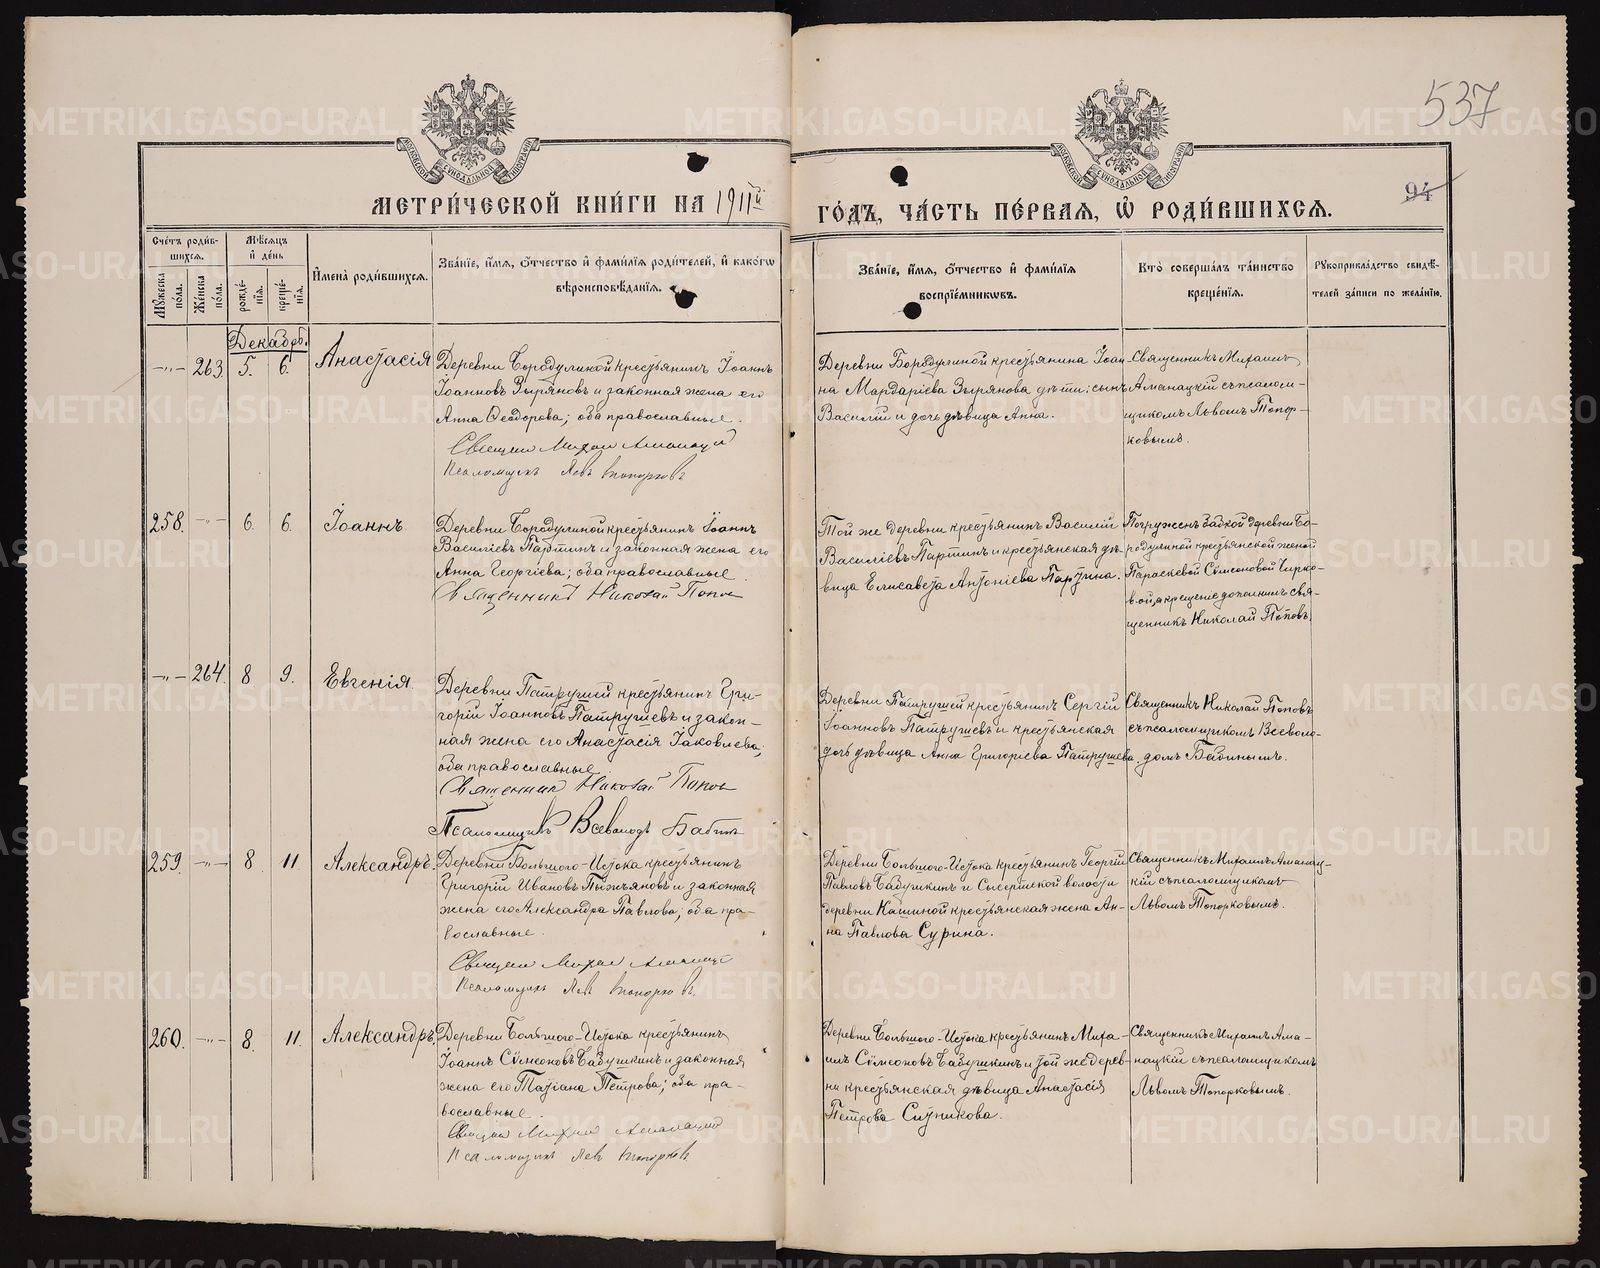 537
94
МЕТРИ́ЧЕСКОЙ КНИ́ГИ НА 1911й ГО́ДЪ, ЧА́СТЬ ПЕ́РВАЯ, Ѡ҆ РОДИ́ВШИХСЯ.
Сче́тъ роди́в-
шихся.
Мꙋ́жеска по́ла.
Же́нска по́ла.
Мѣ́сяцъ
и҆ де́нь
рожде́нїя.
креще́нїя.
И҆мена̀ роди́вшихся.
Зва́нїе, и҆́мя, ѻ҆́тчество и҆ фами́лїя роди́телей, и҆ како́гѡ
вѣроисповѣ́данїя.
Зва́нїе, и҆́мя, ѻ҆́тчество и҆ фами́лїя
воспрїе́мникѡвъ.
Кто̀ соверша́лъ та́инство
креще́нїя.
Рꙋкоприкла́дство свидѣ́-
телей за́писи по жела́нїю.
Декабрь.
—„— 263. 5. 6. Анастасія
Деревни Бородулиной крестьянинъ Іоаннъ
Іоанновъ Зыряновъ и законная жена его
Анна Ѳеодорова; оба православные.
Священ Михаил Аманацкій
Псаломщикъ Левъ Топорковъ
Деревни Бородулиной крестьянина Іоан-
на Мардаріева Зырянова дѣти: сынъ
Василій и дочь дѣвица Анна.
Священникъ Михаилъ
Аманацкій съ псалом-
щикомъ Львомъ Топор-
ковымъ.
258. —„— 6. 6. Іоаннъ
Деревни Бородулиной крестьянинъ Іоаннъ
Василіевъ Партинъ и законная жена его
Анна Георгіева; оба православные.
Священникъ Николай Попов
Той же деревни крестьянинъ Василій
Василіевъ Партинъ и крестьянская дѣ-
вица Елисавета Антоніева Партина.
Погруженъ бабкой деревни Бо-
родулиной крестьянской женой
Параскевой Сѵмеоновой Чирко-
вой, а крещеніе дополнилъ свя-
щенникъ Николай Поповъ.
—„— 264. 8 9. Евгенія.
Деревни Патрушей крестьянинъ Гри-
горій Іоанновъ Патрушевъ и закон-
ная жена его Анастасія Іаковлева;
оба православные
Священникъ Николай Попов
Псаломщикъ Всеволодъ Бабинъ
Деревни Патрушей крестьянинъ Сергій
Іоанновъ Патрушевъ и крестьянская
дочь дѣвица Анна Григоріева Патрушева.
Священникъ Николай Поповъ
съ псаломщикомъ Всеволо-
домъ Бабинымъ.
259. —„— 8 11. Александръ.
Деревни Большого-Истока крестьянинъ
Григорій Ивановъ Пыжъяновъ и законная
жена его Александра Павлова; оба пра-
вославные.
Священ Михаил Аманацкій
Псаломщикъ Левъ Топорковъ.
Деревни Большого-Истока крестьянинъ Георгій
Павловъ Бабушкинъ и Сысертской волости
деревни Кашиной крестьянская жена Ан-
на Павлова Сурина.
Священникъ Михаилъ Аманац-
кій съ псаломщикомъ
Львомъ Топорковымъ.
260. —„— 8. 11. Александръ
Деревни Большого-Истока крестьянинъ
Іоаннъ Сѵмеоновъ Бабушкинъ и законная
жена его Татіана Петрова; оба пра-
вославные.
Священ Михаил Аманацкій
Псаломщикъ Левъ Топорковъ
Деревни Большого-Истока крестьянинъ Миха-
илъ Сѵмеоновъ Бабушкинъ и той же дерев-
ни крестьянская дѣвица Анастасія
Петрова Ситникова.
Священникъ Михаилъ Ама-
нацкій съ псаломщикомъ
Львомъ Топорковымъ.
METRIKI.GASO-URAL.RU